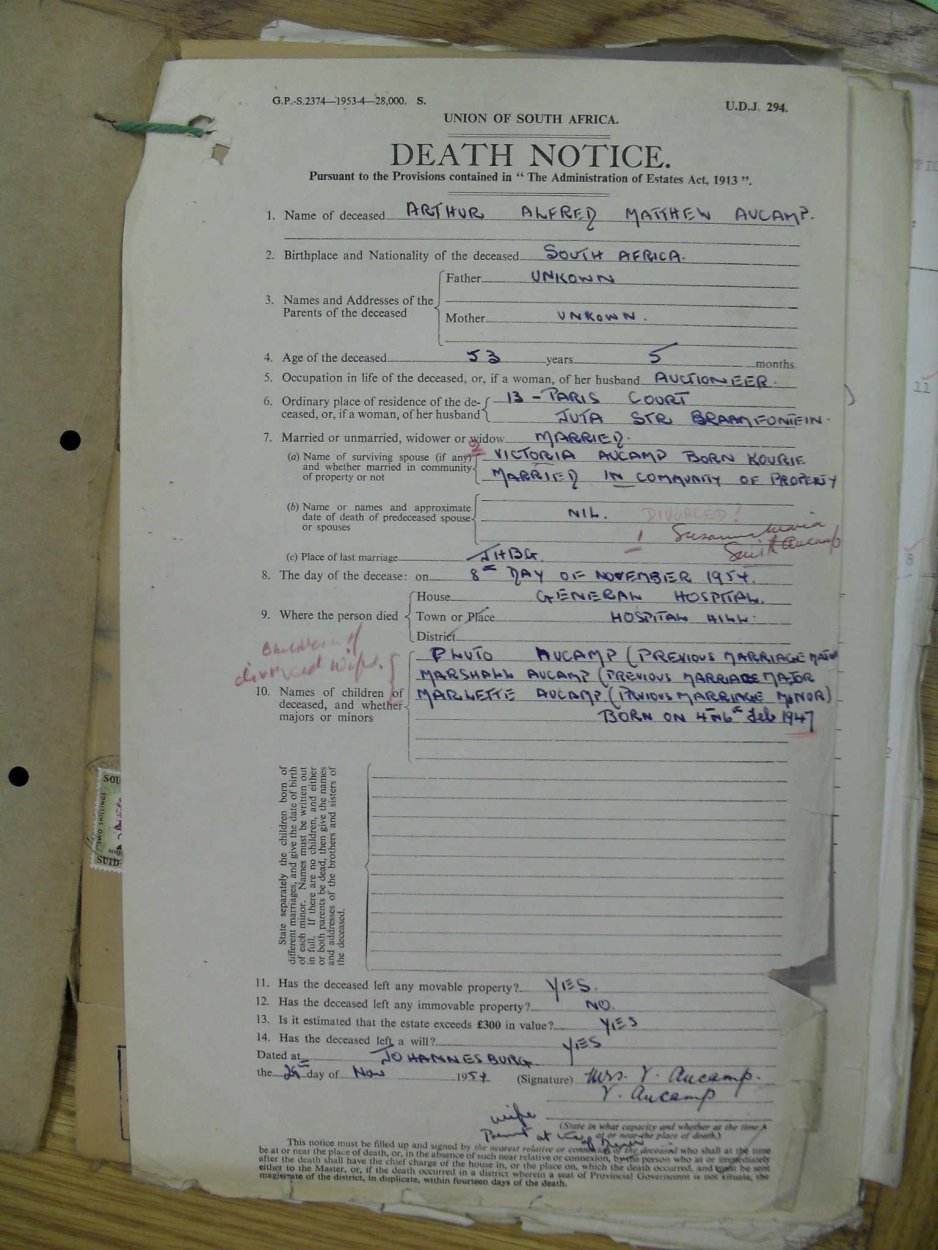 G.P.-S.2374—1953-4—28,000. S.
U.D.J. 294.
UNION OF SOUTH AFRICA.
DEATH NOTICE.
Pursuant to the Provisions contained in "The Administration of Estates Act, 1913".
1. Name of deceased ARTHUR ALFRED MATTHEW AUCAMP.
2. Birthplace and Nationality of the deceased SOUTH AFRICA.
3. Names and Addresses of the Parents of the deceased
Father UNKOWN
Mother UNKOWN.
4. Age of the deceased 53 years 5 months.
5. Occupation in life of the deceased, or, if a woman, of her husband AUCTIONEER.
6. Ordinary place of residence of the de-
ceased, or, if a woman, of her husband
13 - PARIS COURT
JUTA STR BRAAMFONTEIN.
7. Married or unmarried, widower or widow MARRIED.
(a) Name of surviving spouse (if any)
and whether married in community
of property or not
VICTORIA AUCAMP BORN KOURIE
MARRIED IN COMMUNITY OF PROPERTY
(b) Name or names and approximate
date of death of predeceased spouse
or spouses
NIL. DIVORCED!
Susanna Maria
Smith Aucamp
(c) Place of last marriage JHBG.
8. The day of the decease: on 8th DAY OF NOVEMBER 1954.
9. Where the person died
House GENERAL HOSPITAL.
Town or Place HOSPITAL HILL.
District
Children of
divorced wife
10. Names of children of
deceased, and whether
majors or minors
PLUTO AUCAMP (PREVIOUS MARRIAGE MAJOR
MARSHALL AUCAMP (PREVIOUS MARRIAGE MAJOR
MARLETTE AUCAMP (PREVIOUS MARRIAGE MINOR)
BORN ON Feb 1947
State separately the children born of
different marriages, and give the date of birth
of each minor. Names must be written out
in full. If there are no children, and either
or both parents be dead, then give the names
and addresses of the brothers and sisters of
the deceased.
11. Has the deceased left any movable property? YES.
12. Has the deceased left any immovable property? NO.
13. Is it estimated that the estate exceeds £300 in value? YES
14. Has the deceased left a will? YES
Dated at JOHANNESBURG
the day of Nov 1954 (Signature) Mrs. V. Aucamp.
V. Aucamp
wife
(State in what capacity and whether at the time
at or near the place of death.)
This notice must be filled up and signed by the nearest relative or connexion of the deceased who shall at the time
be at or near the place of death, or, in the absence of such near relative or connexion, by the person who at or immediately
after the death shall have the chief charge of the house in, or the place on, which the death occurred, and must be sent
either to the Master, or, if the death occurred in a district wherein a seat of Provincial Government is not situate, the
magistrate of the district, in duplicate, within fourteen days of the death.
SOU
TWO SHILLINGS
SUID-
11
8